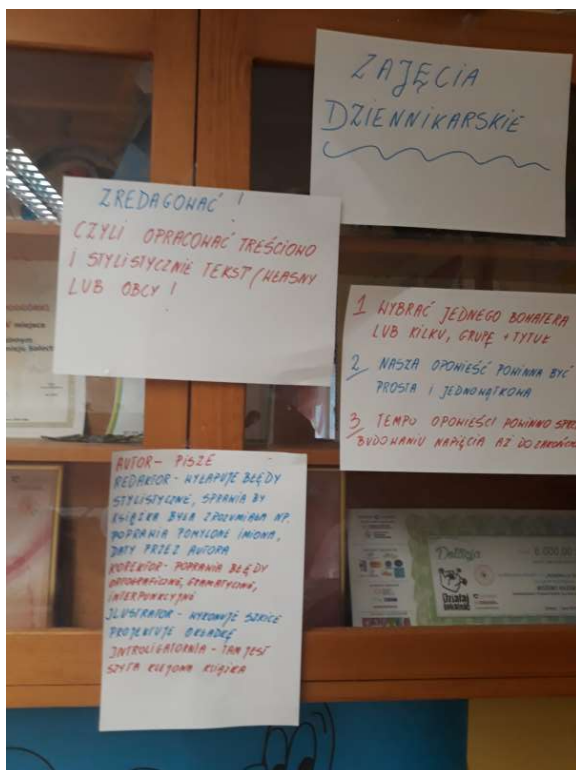 ZAJĘCIA
DZIENNIKARSKIE
ZREDAGOWAĆ !
CZYLI OPRACOWAĆ TREŚCIOWO
I STYLISTYCZNIE TEKST (WŁASNY
LUB OBCY !
1 WYBRAĆ JEDNEGO BOHATERA
LUB KILKU, GRUPĘ + TYTUŁ
2 NASZA OPOWIEŚĆ POWINNA BYĆ
PROSTA I JEDNOWĄTKOWA
3 TEMPO OPOWIEŚCI POWINNO
BUDOWANIU NAPIĘCIA AŻ DO
AUTOR - PISZE
REDAKTOR - WYŁAPUJE BŁĘDY
STYLISTYCZNE, SPRAWIA BY
KSIĄŻKA BYŁA ZROZUMIAŁA NP.
POPRAWIA POMYLONE IMIONA,
DATY PRZEZ AUTORA
KOREKTOR - POPRAWIA BŁĘDY
ORTOGRAFICZNE, GRAMATYCZNE,
INTERPUNKCYJNE
ILUSTRATOR - WYKONUJE SZKICE
PROJEKTUJE OKŁADKĘ
INTROLIGATORNIA - TAM JEST
SZYTA KLEJONA KSIĄŻKA
miejsca
Dotacja
Działaj